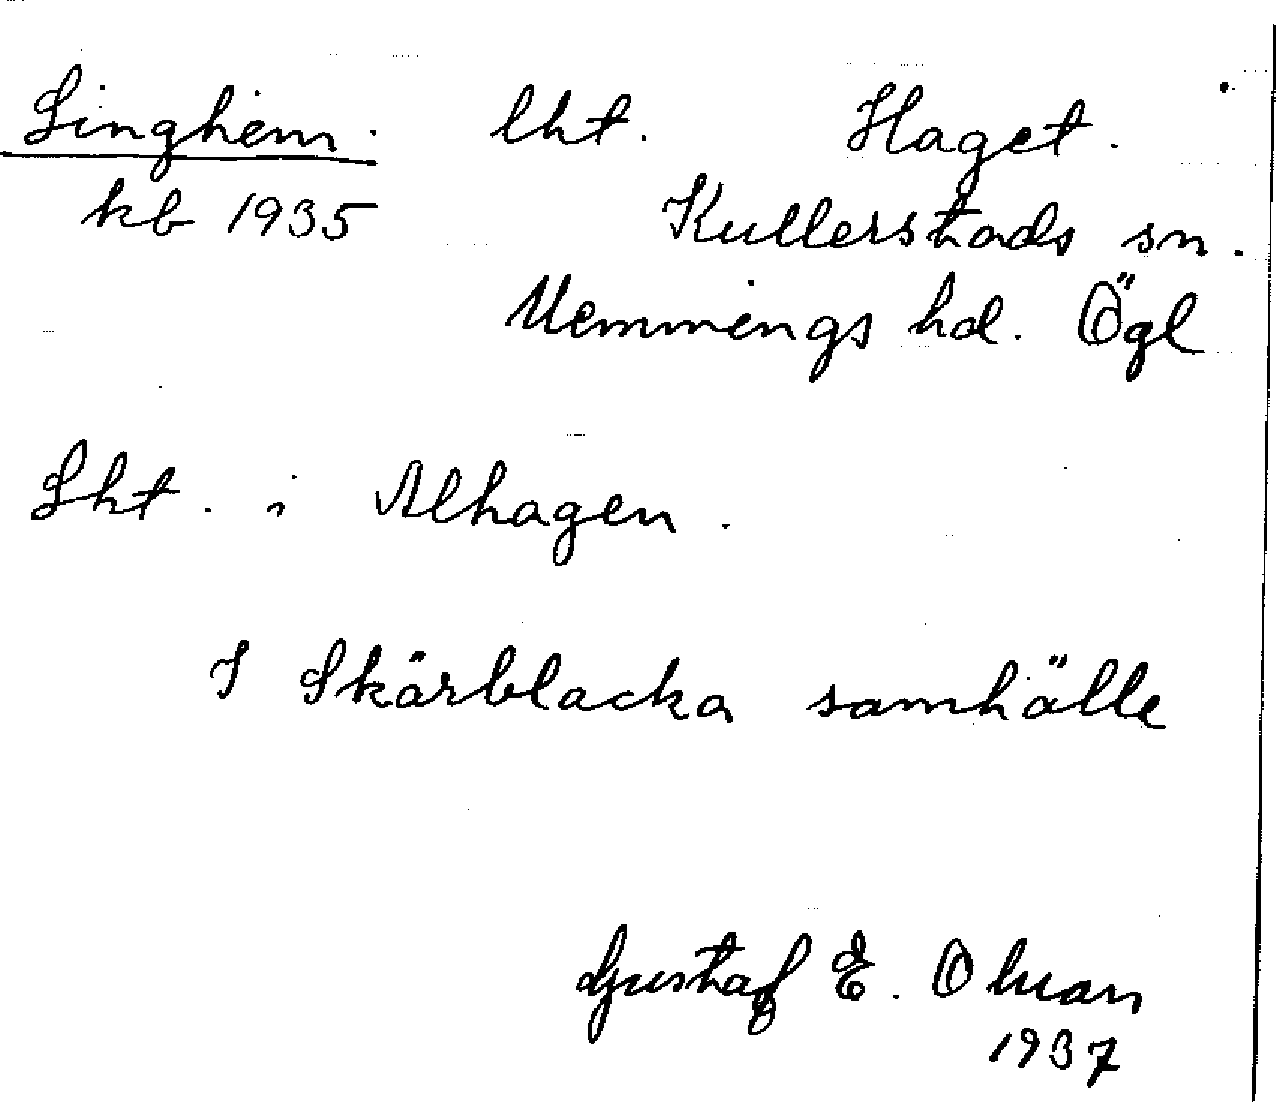 Linghem. lht. Haget.
kb 1935 Kullerstads sn.
Memmings hd. Ögl
Lht. i Alhagen.
I Skärblacka samhälle
Gustaf E.
1937